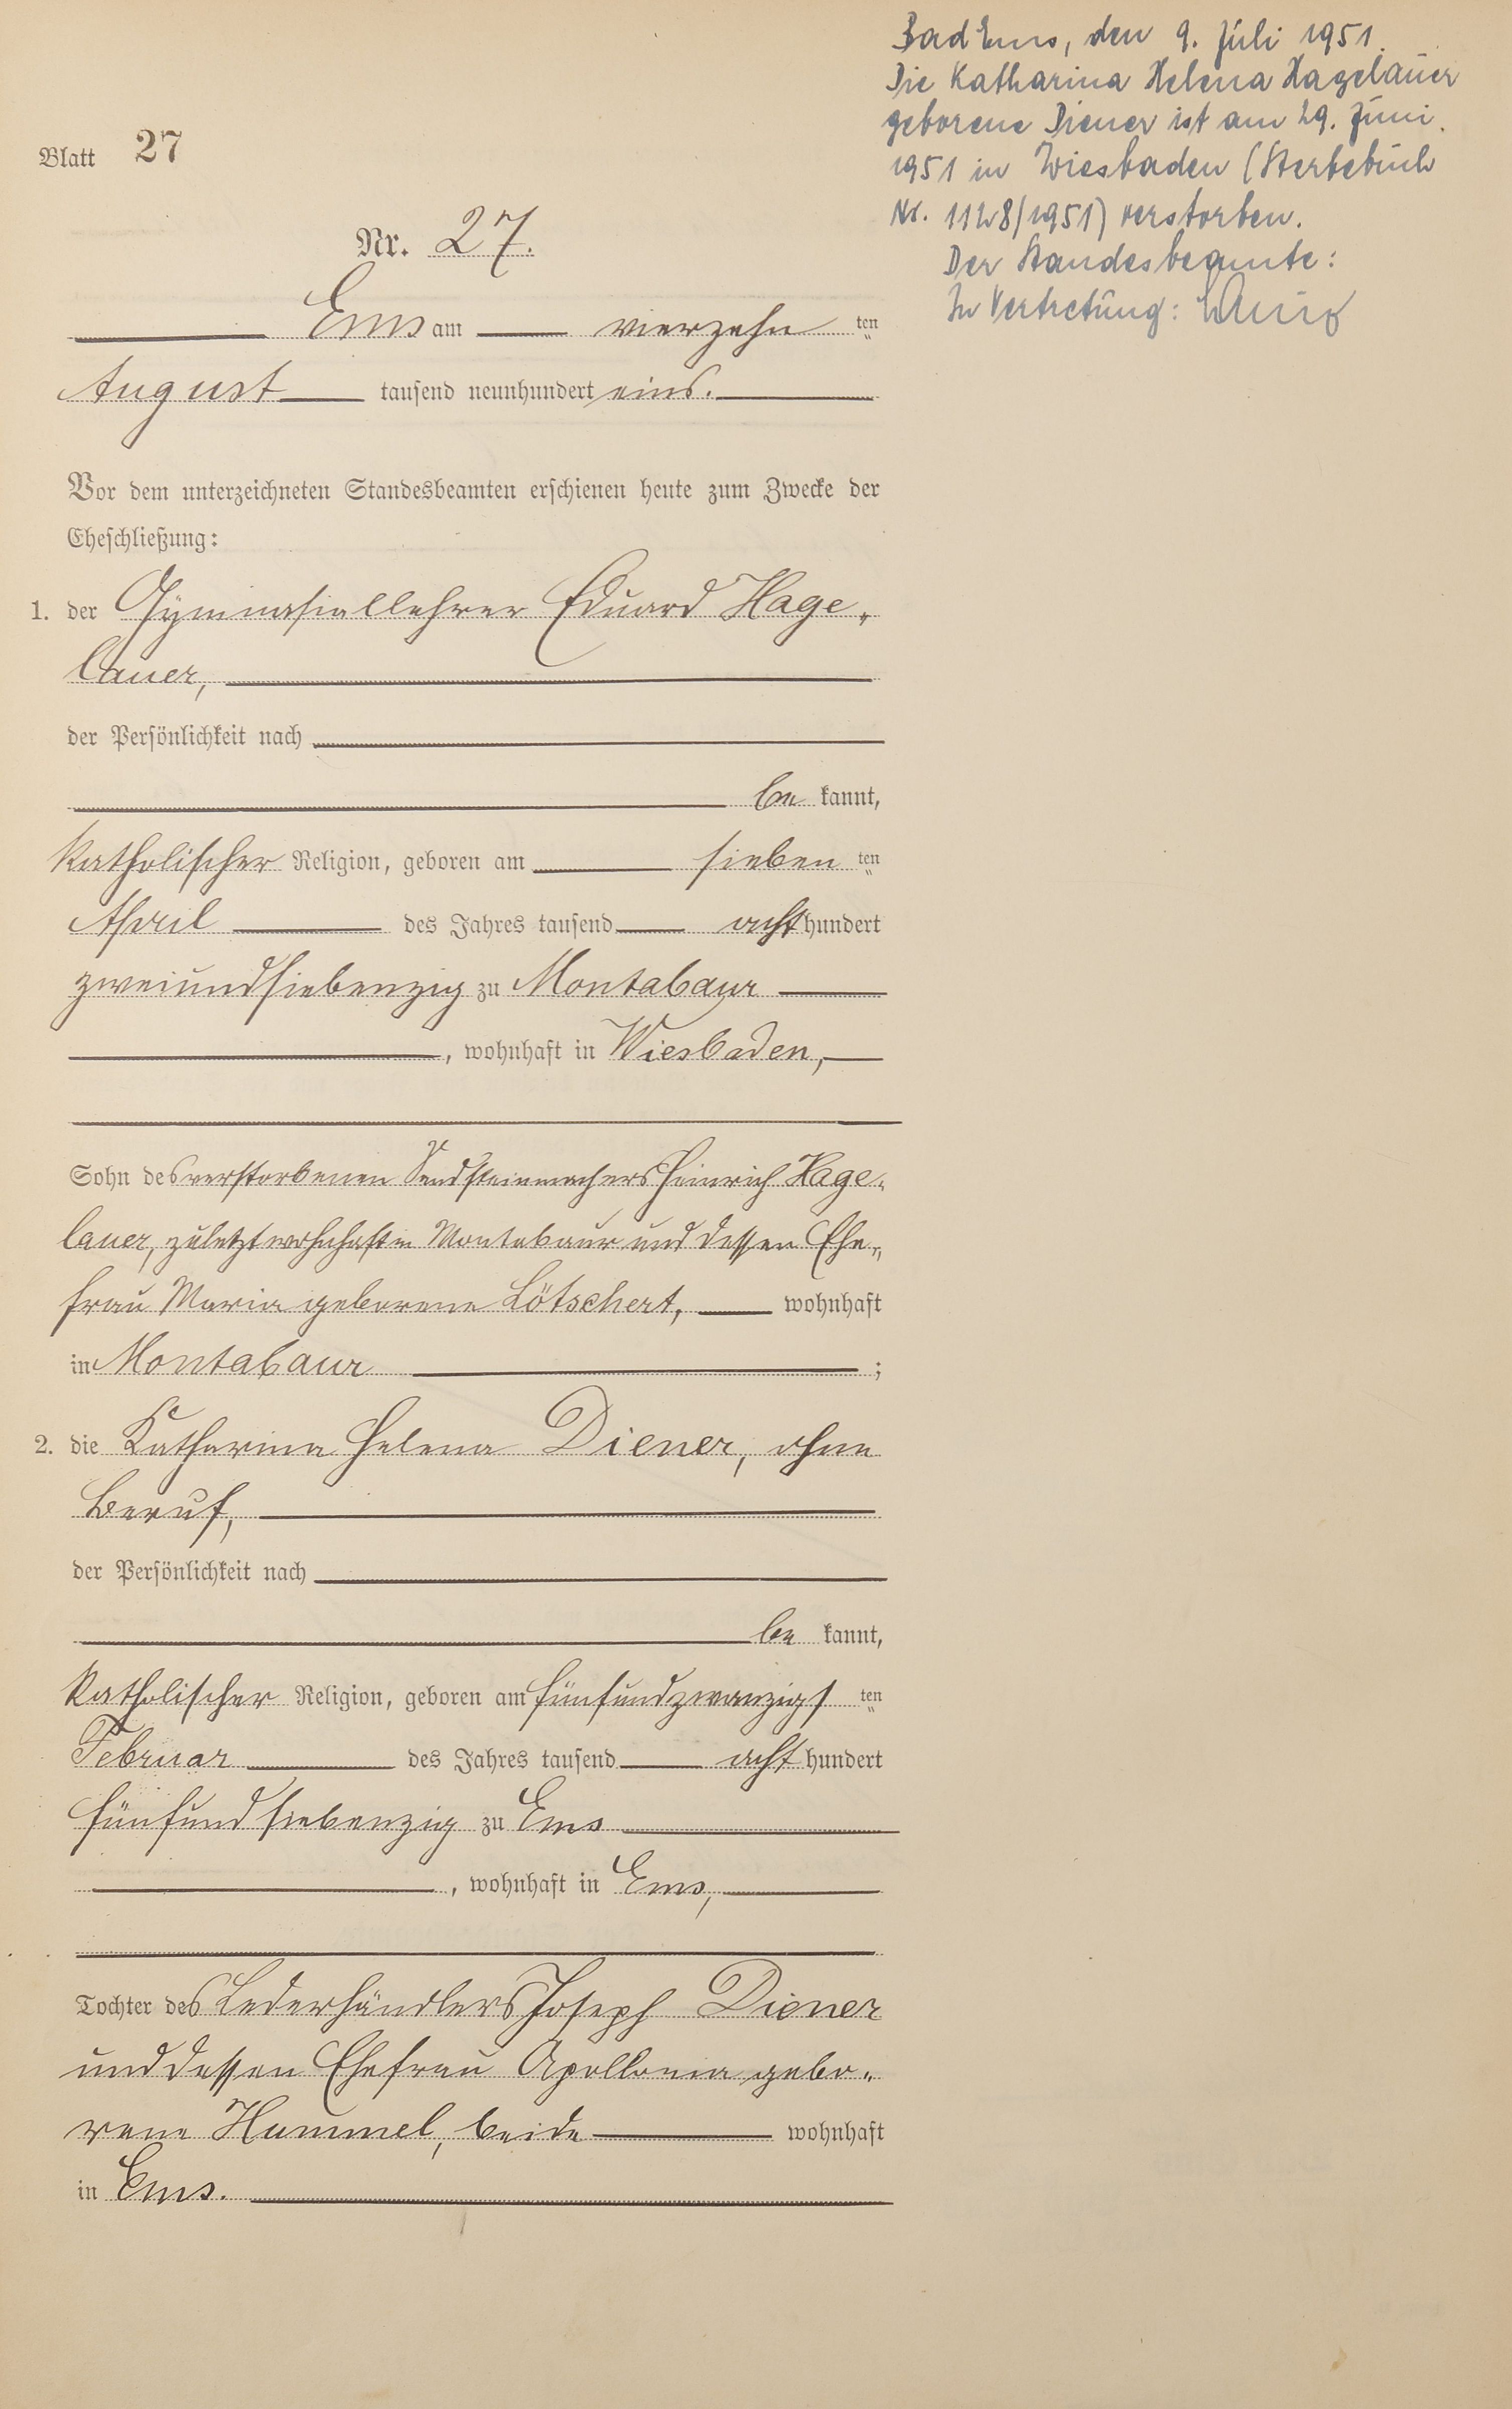 Blatt 27
Nr. 27.
Ems am vierzehn ten
August tausend neunhundert eins.
Vor dem unterzeichneten Standesbeamten erschienen heute zum Zwecke der
Eheschließung:
1. der Gymnasiallehrer Eduard Hage„
lauer,
der Persönlichkeit nach
be kannt,
katholischer Religion, geboren am sieben ten
April des Jahres tausend acht hundert
zweiundsiebenzig zu Montabaur
, wohnhaft in Wiesbaden,
Sohn des verstorbenen Sandsteinmachers Heinrich Hage„
lauer, zuletzt wohnhaft in Montabaur und dessen Ehe„
frau Maria geborene Lötschert, wohnhaft
in Montabaur ;
2. die Katharina Helena Diener, ohne
Beruf,
der Persönlichkeit nach
be kannt,
katholischer Religion, geboren am fünfundzwanzigs ten
Februar des Jahres tausend acht hundert
fünfundsiebenzig zu Ems
, wohnhaft in Ems,
Tochter des Lederhändlers Joseph Diener
und dessen Ehefrau Apollonia gebo„
rene Hummel, beide wohnhaft
in Ems.
Bad Ems, den 9. Juli 1951.
Die Katharina Helena Hagelauer
geborene Diener ist am 29. Juni
1951 in Wiesbaden (Sterbebuch
Nr. 1128/1951) verstorben.
Der Standesbeamte:
In Vertretung: